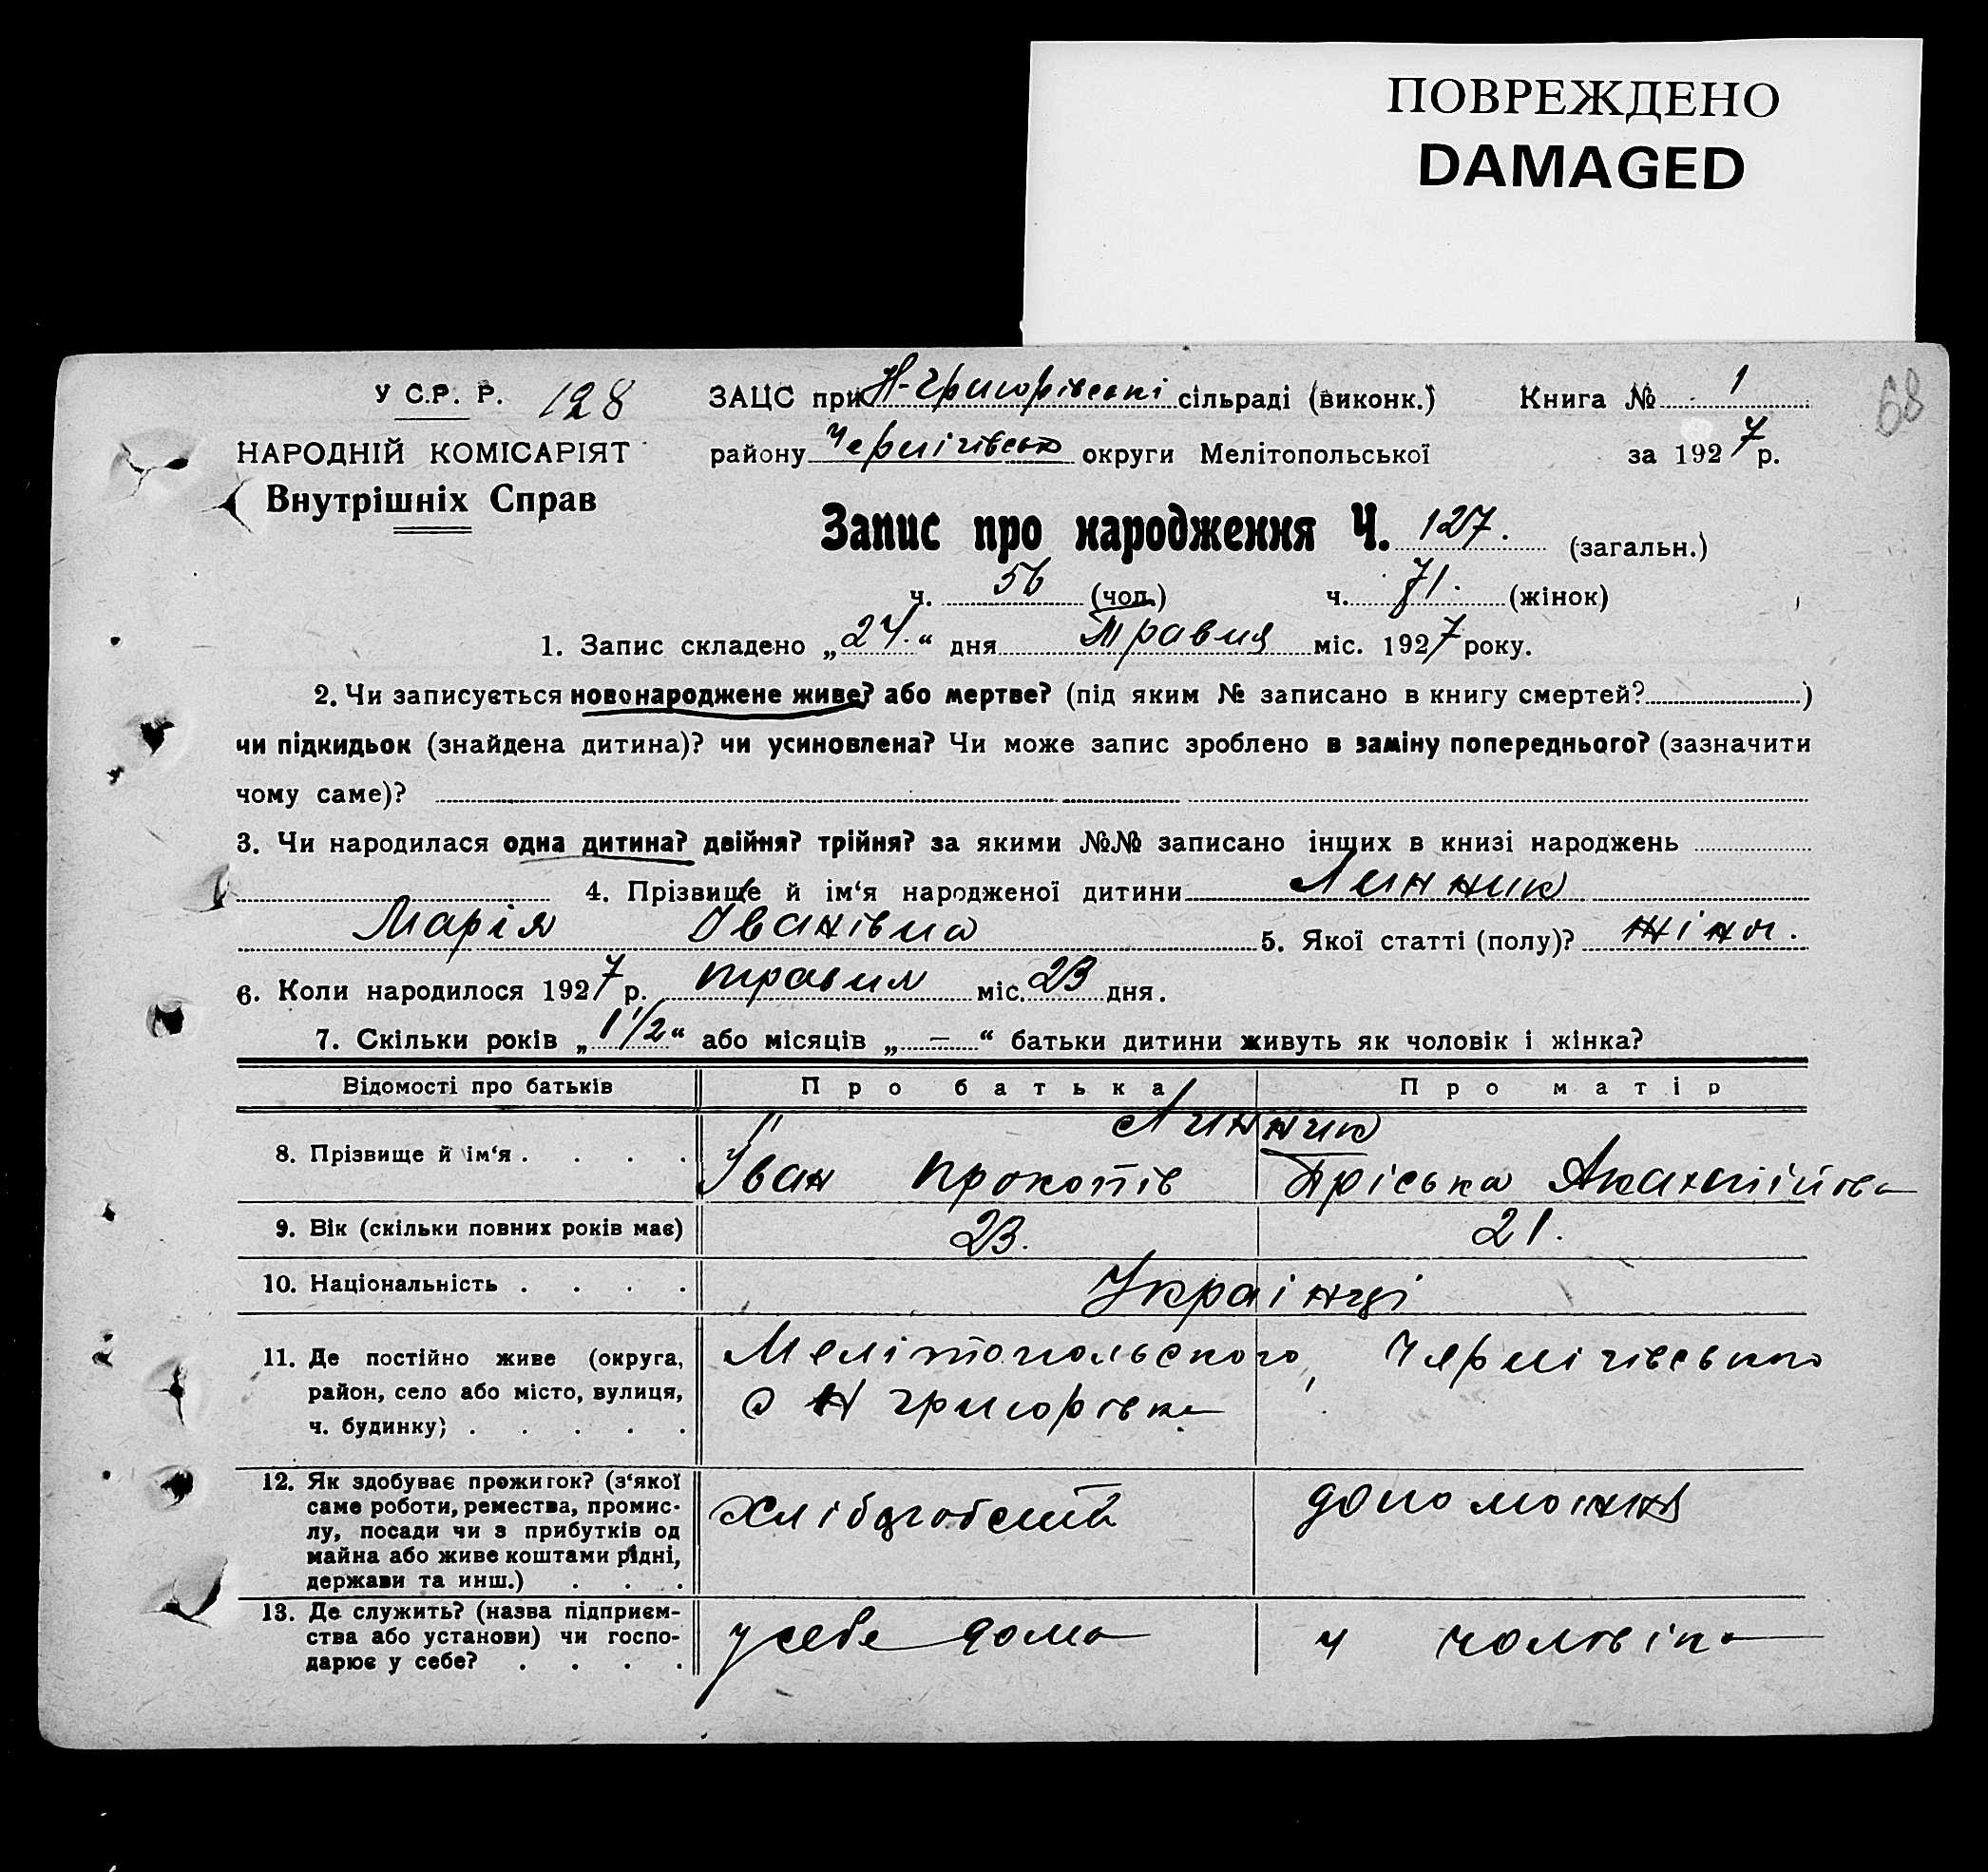 ПОВРЕЖДЕНО
DAMAGED
У С.Р. Р. 128 ЗАЦС при Н-Григорівські сільраді (виконк.) Книга № 1 68
НАРОДНІЙ КОМІСАРІЯТ району Чернігівськ округи Мелітопольської за 1927 р.
Внутрішніх Справ
Запис про народження Ч. 127. (загальн.)
ч. 56 (чол.) ч. 71. (жінок)
1. Запис складено „24.“ дня Травня міс. 1927 року.
2. Чи записується новонароджене живе? або мертве? (під яким № записано в книгу смертей? )
чи підкидьок (знайдена дитина)? чи усиновлена? Чи може запис зроблено в заміну попереднього? (зазначити
чому саме)?
3. Чи народилася одна дитина? двійня? трійня? за якими №№ записано інших в книзі народжень
4. Прізвище й ім‘я народженої дитини Линник
Марія Іванівна 5. Якої статті (полу)? жіноч.
6. Коли народилося 1927 р. травня міс. 23 дня.
7. Скільки років „1 1/2“ або місяців „—“ батьки дитини живуть як чоловік і жінка?
Відомості про батьків Про батька Про матір
Линник
8. Прізвище й ім‘я . . . . Іван Прокопів Пріська
9. Вік (скільки повних років має) 23. 21.
10. Національність . . . . Украінці
11. Де постійно живе (округа, Мелітопольського, Чернігівського
район, село або місто, вулиця, с Н григорівка
ч. будинку) . . . . .
12. Як здобуває прожиток? (з‘якої
саме роботи, ремества, промис-
лу, посади чи з прибутків од
майна або живе коштами рідні,
держави та инш.) . . .
хліборобства
13. Де служить? (назва підприєм-
ства або установи) чи госпо-
дарює у себе? . . . .
у себе дома у чоловіка